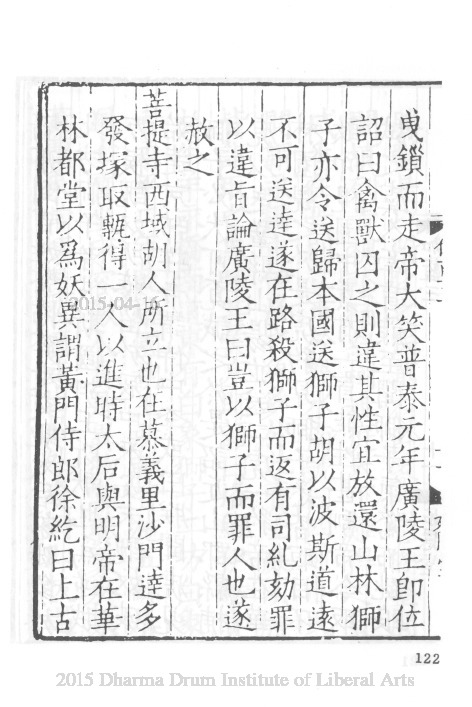 曳鎖而走帝大笑普泰元年廣陵王卽位
詔曰禽獸囚之則違其性宜放還山林獅
子亦令送歸本國送獅子胡以波斯道遠
不可送達遂在路殺獅子而返有司糺劾罪
以違旨論廣陵王曰豈以獅子而罪人也遂
赦之
菩提寺西域胡人所立也在慕義里沙門達多
發塚取甎得一人以進時太后與明帝在華
林都堂以爲妖異謂黃門侍郎徐紇曰上古
2015-04-16
122
2015 Dharma Drum Institute of Liberal Arts